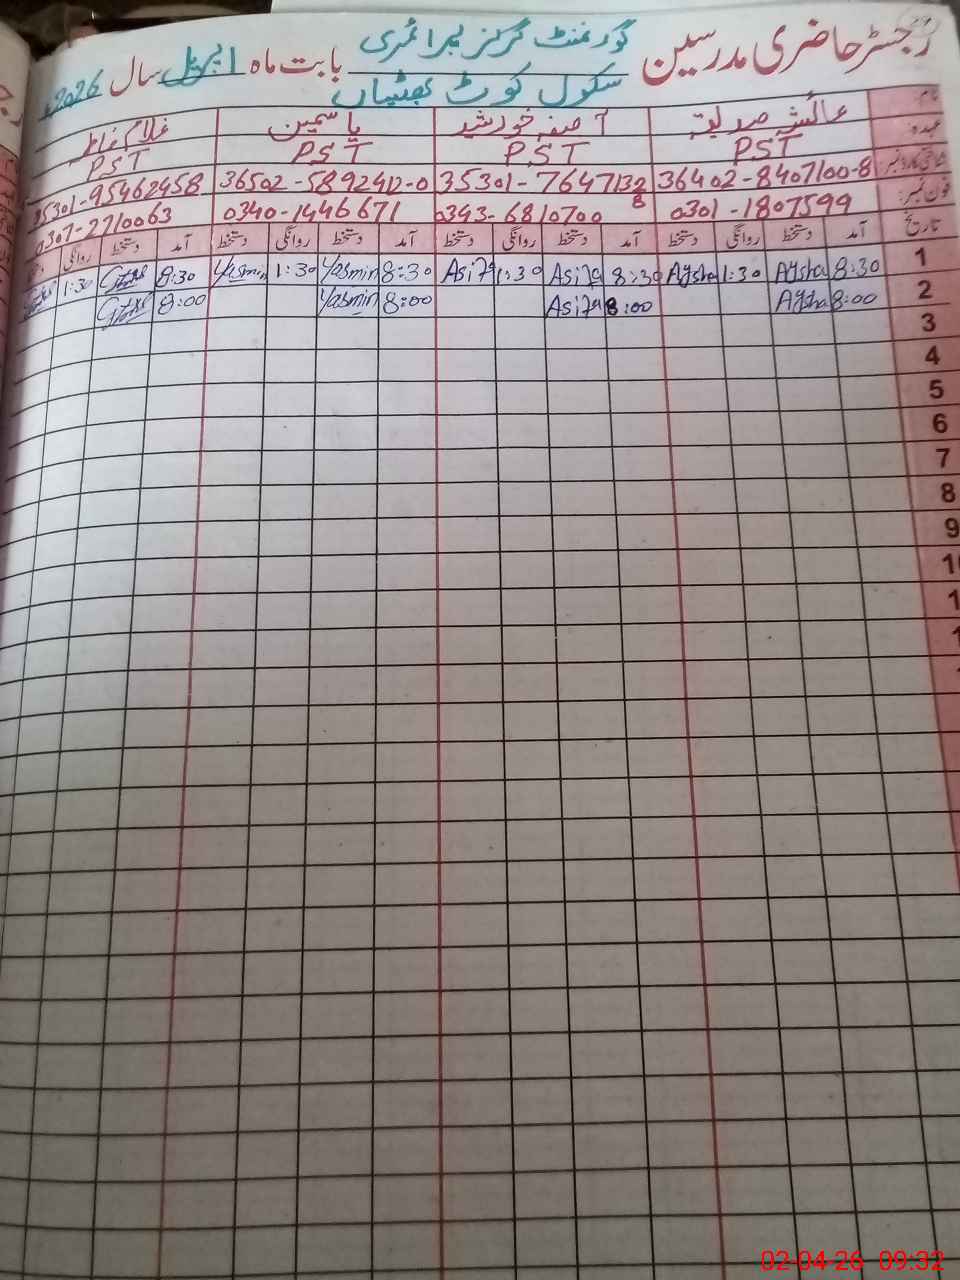 29
رجسٹر حاضری مدرسین گورنمنٹ گرلز پرائمری سکول کوٹ بھٹیاں بابت ماہ اپریل سال 2026
نام: عائشہ صدیقہ آصفہ خورشید یاسمین غلام فاطمہ
عہدہ: PST PST PST PST
شناختی کارڈ نمبر: 36402-8407100-8 35301-7647132 8 36502-5892412-0 35301-95462458
فون نمبر: 0301-1807599 0343-6810700 0340-1446671 0307-2710063
تاریخ آمد دستخط روانگی دستخط آمد دستخط روانگی دستخط آمد دستخط روانگی دستخط آمد دستخط روانگی
1 8:30 Aysha 1:30 Aysha 8:30 Asifa 1:30 Asifa 8:30 Yasmin 1:30 Yasmin 8:30 1:30
2 8:00 Aysha 8:00 Asifa 8:00 Yasmin 8:00
3
4
5
6
7
8
9
10
1
1
02-04-26 09:32